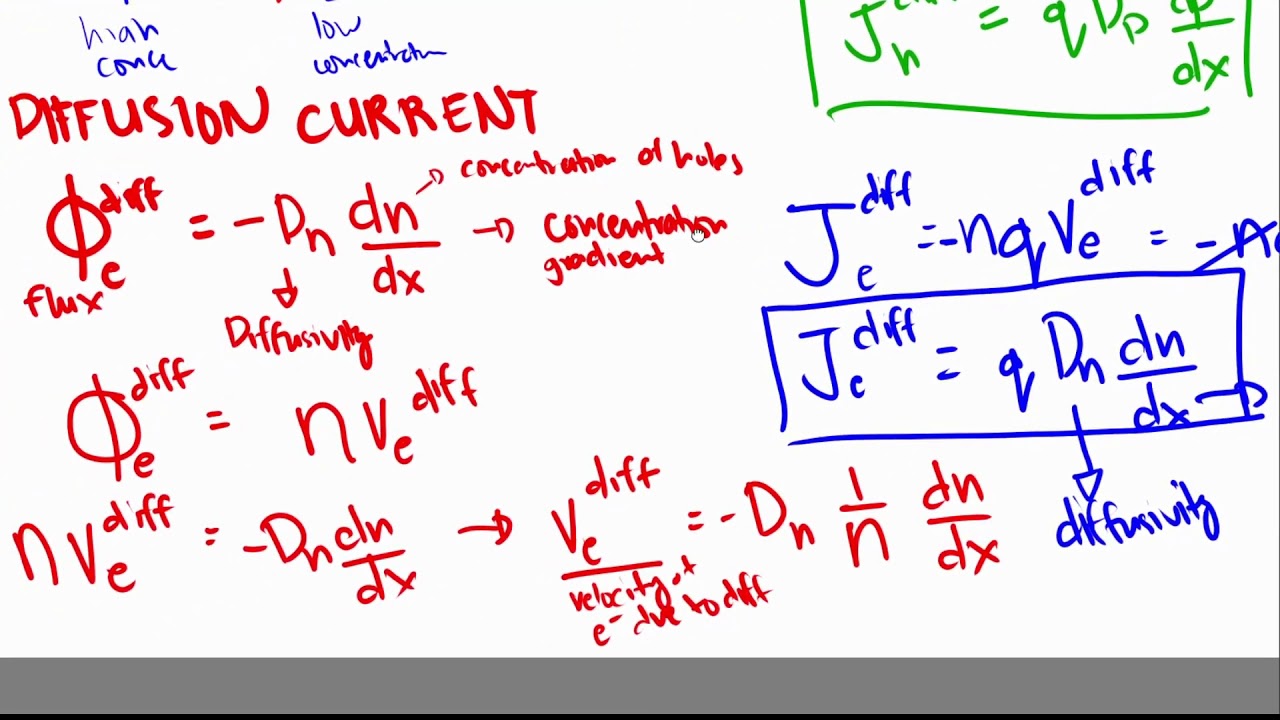 high
conce
low
concentration
DIFFUSION CURRENT
ϕₑ^diff = -Dₙ dn/dx
→ concentration of holes
→ concentration gradient
flux
Diffusivity
ϕₑ^diff = n Vₑ^diff
n Vₑ^diff = -Dₙ dn/dx → Vₑ^diff = -Dₙ 1/n dn/dx
velocity of
e⁻ due to diff
Jₕ = q D_p dp/dx
Jₑ^diff = -nqVₑ^diff = -
Jₑ^diff = q Dₙ dn/dx →
diffusivity